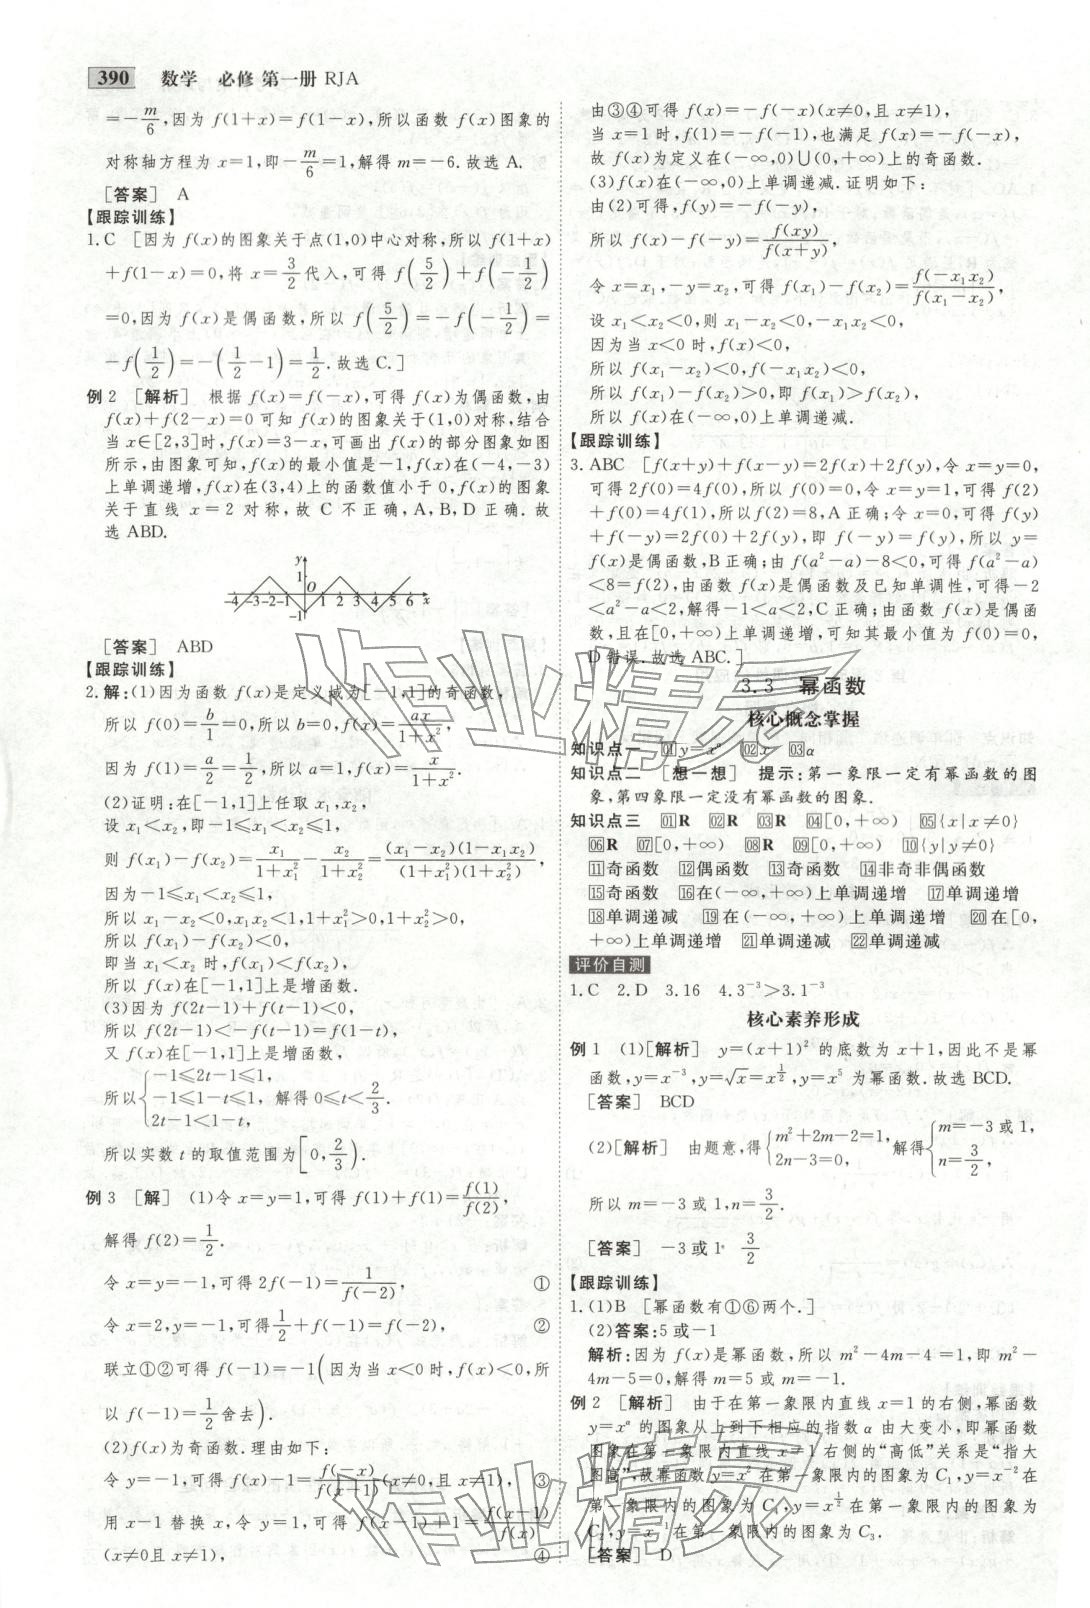 390 数学 必修 第一册 RJA
=-m/6,因为 f(1+x)=f(1-x),所以函数 f(x)图象的
对称轴方程为 x=1,即-m/6=1,解得 m=-6.故选 A.
[答案] A
【跟踪训练】
1.C [因为 f(x)的图象关于点(1,0)中心对称,所以 f(1+x)
+f(1-x)=0,将 x=3/2代入,可得 f(5/2)+f(-1/2)
=0,因为 f(x)是偶函数,所以 f(5/2)=-f(-1/2)=
-f(1/2)=-(1/2-1)=1/2.故选 C.]
例 2 [解析] 根据 f(x)=f(-x),可得 f(x)为偶函数,由
f(x)+f(2-x)=0 可知 f(x)的图象关于(1,0)对称,结合
当 x∈[2,3]时,f(x)=3-x,可画出 f(x)的部分图象如图
所示,由图象可知,f(x)的最小值是-1,f(x)在(-4,-3)
上单调递增,f(x)在(3,4)上的函数值小于 0,f(x)的图象
关于直线 x=2 对称,故 C 不正确,A,B,D 正确.故
选 ABD.
y
1
O
-4 -3 -2 -1 1 2 3 4 5 6 x
-1
[答案] ABD
【跟踪训练】
2.解:(1)因为函数 f(x)是定义域为[-1,1]的奇函数,
所以 f(0)=b/1=0,所以 b=0,f(x)=ax/(1+x²),
因为 f(1)=a/2=1/2,所以 a=1,f(x)=x/(1+x²).
(2)证明:在[-1,1]上任取 x₁,x₂,
设 x₁<x₂,即-1≤x₁<x₂≤1,
则 f(x₁)-f(x₂)=x₁/(1+x₁²)-x₂/(1+x₂²)=(x₁-x₂)(1-x₁x₂)/(1+x₁²)(1+x₂²),
因为-1≤x₁<x₂≤1,
所以 x₁-x₂<0,x₁x₂<1,1+x₁²>0,1+x₂²>0,
所以 f(x₁)-f(x₂)<0,
即当 x₁<x₂ 时,f(x₁)<f(x₂),
所以 f(x)在[-1,1]上是增函数.
(3)因为 f(2t-1)+f(t)<0,
所以 f(2t-1)<-f(t)=f(1-t),
又 f(x)在[-1,1]上是增函数,
所以{-1≤2t-1≤1, -1≤1-t≤1, 2t-1<1-t, 解得 0≤t<2/3.
所以实数 t 的取值范围为[0,2/3).
例 3 [解] (1)令 x=y=1,可得 f(1)+f(1)=f(1)/f(2),
解得 f(2)=1/2.
令 x=y=-1,可得 2f(-1)=1/f(-2), ①
令 x=2,y=-1,可得1/2+f(-1)=f(-2), ②
联立①②可得 f(-1)=-1(因为当 x<0 时,f(x)<0,所
以 f(-1)=1/2舍去).
(2)f(x)为奇函数.理由如下:
令 y=-1,可得 f(x)-1=f(-x)/f(x-1)(x≠0,且 x≠1), ③
用 x-1 替换 x,令 y=1,可得 f(x-1)+1=f(x-1)/f(x)
(x≠0且 x≠1), ④
由③④可得 f(x)=-f(-x)(x≠0,且 x≠1),
当 x=1 时,f(1)=-f(-1),也满足 f(x)=-f(-x),
故 f(x)为定义在(-∞,0)∪(0,+∞)上的奇函数.
(3)f(x)在(-∞,0)上单调递减.证明如下:
由(2)可得,f(y)=-f(-y),
所以 f(x)-f(-y)=f(xy)/f(x+y),
令 x=x₁,-y=x₂,可得 f(x₁)-f(x₂)=f(-x₁x₂)/f(x₁-x₂),
设 x₁<x₂<0,则 x₁-x₂<0,-x₁x₂<0,
因为当 x<0 时,f(x)<0,
所以 f(x₁-x₂)<0,f(-x₁x₂)<0,
所以 f(x₁)-f(x₂)>0,即 f(x₁)>f(x₂),
所以 f(x)在(-∞,0)上单调递减.
【跟踪训练】
3.ABC [f(x+y)+f(x-y)=2f(x)+2f(y),令 x=y=0,
可得 2f(0)=4f(0),所以 f(0)=0,令 x=y=1,可得 f(2)
+f(0)=4f(1),所以f(2)=8,A 正确;令 x=0,可得 f(y)
+f(-y)=2f(0)+2f(y),即 f(-y)=f(y),所以 y=
f(x)是偶函数,B 正确;由 f(a²-a)-8<0,可得 f(a²-a)
<8=f(2),由函数 f(x)是偶函数及已知单调性,可得-2
<a²-a<2,解得-1<a<2,C 正确;由函数 f(x)是偶函
数,且在[0,+∞)上单调递增,可知其最小值为 f(0)=0,
D 错误.故选 ABC.]
3.3 幂函数
核心概念掌握
知识点一 01y=xᵅ 02x 03α
知识点二 [想一想] 提示:第一象限一定有幂函数的图
象,第四象限一定没有幂函数的图象.
知识点三 01R 02R 03R 04[0,+∞) 05{x|x≠0}
06R 07[0,+∞) 08R 09[0,+∞) 10{y|y≠0}
11奇函数 12偶函数 13奇函数 14非奇非偶函数
15奇函数 16在(-∞,+∞)上单调递增 17单调递增
18单调递减 19在(-∞,+∞)上单调递增 20在[0,
+∞)上单调递增 21单调递减 22单调递减
评价自测
1.C 2.D 3.16 4.3⁻³>3.1⁻³
核心素养形成
例 1 (1)[解析] y=(x+1)² 的底数为 x+1,因此不是幂
函数,y=x⁻³,y=√x=x^(1/2),y=x⁵ 为幂函数.故选 BCD.
[答案] BCD
(2)[解析] 由题意,得{m²+2m-2=1, 2n-3=0, 解得{m=-3 或 1, n=3/2,
所以 m=-3 或 1,n=3/2.
[答案] -3或1 3/2
【跟踪训练】
1.(1)B [幂函数有①⑥两个.]
(2)答案:5 或-1
解析:因为 f(x)是幂函数,所以 m²-4m-4=1,即 m²-
4m-5=0,解得 m=5 或 m=-1.
例 2 [解析] 由于在第一象限内直线 x=1 的右侧,幂函数
y=xᵅ 的图象从上到下相应的指数 α 由大变小,即幂函数
图象在第一象限内直线 x=1 右侧的“高低”关系是“指大
图高”,故幂函数 y=x² 在第一象限内的图象为 C₁,y=x⁻² 在
第一象限内的图象为 C₄,y=x^(1/2) 在第一象限内的图象为
C₂,y=x^(-1/2) 在第一象限内的图象为 C₃.
[答案] D
作业精灵
作业精灵